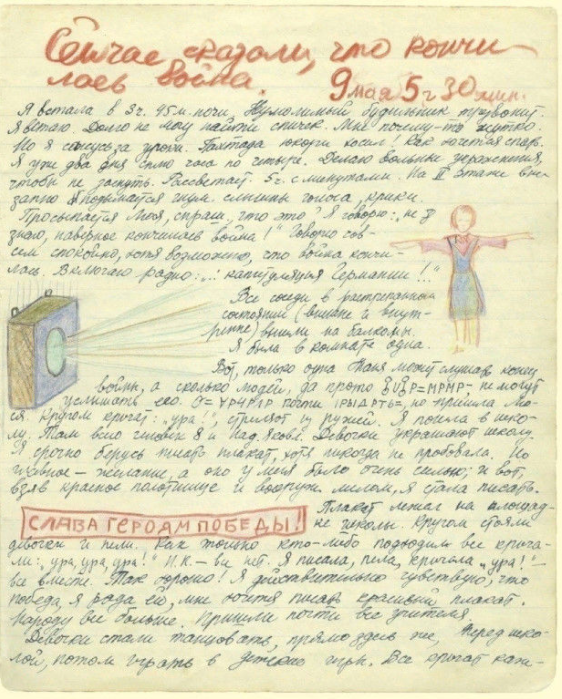 Сейчас сказали, что кончи-
лась война. 9 мая 5 ч 30 мин.
Я встала в 3 ч. 45 м. ночи. Неумолимый будильник трезвонит.
Я встаю. Долго не могу найти спичек. Мне почему-то жутко.
Но я сажусь за уроки. хочется спать.
Я уже два дня сплю часа по четыре. Делаю вольные упражнения,
чтобы не заснуть. Рассветает. 5 ч. с минутами. На II этаже вне-
запно поднимается шум. слышны голоса, крики.
Просыпается Люся, спраш.: что это? Я говорю: „не
знаю, наверное кончилась война!" Говорю сов-
сем спокойно, хотя возможно, что война кончи-
лась. Включаю радио: „...: капитуляция Германии!.."
Все соседи в растрепанном
состоянии (внешне и внут-
ренне) вышли на балконы.
Я была в комнате одна.
Вот, только одна Таня может слушать конец
войны, а сколько людей, да просто не могут
услышать его. почти но пришла Лю-
ся. Кругом кричат: „ура!", стреляют из ружей. Я пошла в шко-
лу. Там всего человек 8 и Над. Яковл. Девочки украшают школу.
Я срочно берусь писать плакат, хотя никогда не пробовала. Но
главное – желание, а оно у меня было очень сильно; и вот,
взяв красное полотнище и вооруж. мелом, я стала писать.
СЛАВА ГЕРОЯМ ПОБЕДЫ!
Плакат лежал на площад-
ке школы. Кругом стояли
девочки и пели. Как только кто-либо подходил все крича-
ли: „ура, ура, ура!" И.К. – вы нет. Я писала, пела, кричала „ура!" –
все вместе. Так хорошо! Я действительно чувствую, что
победа, я рада ей, мне хочется писать красивый плакат.
Народу все больше. Пришли почти все учителя.
Девочки стали танцовать, прямо здесь же, перед шко-
лой, потом играть в детские игры. Все кричат каж-